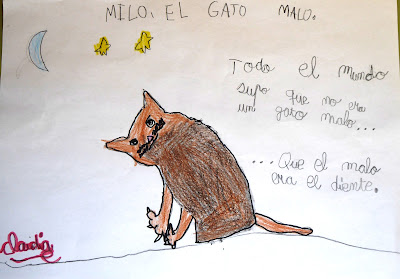 MILO, EL GATO MALO.
Todo el mundo
supo que no era
un gato malo...
...Que el malo
era el diente.
Claudia